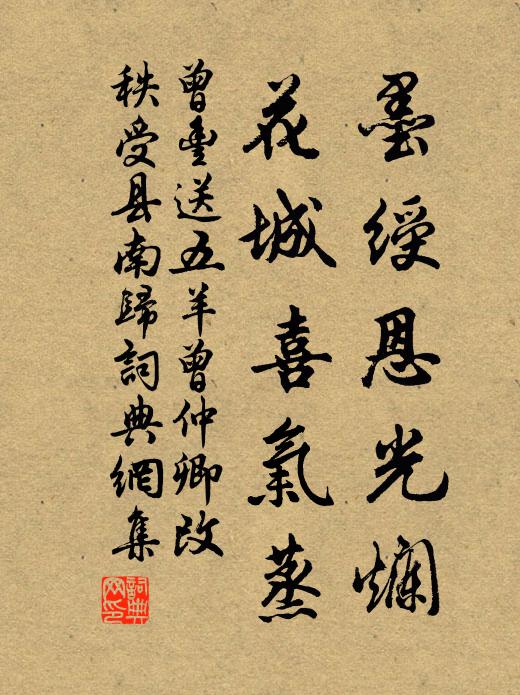 墨綬恩光爛
花城喜氣蒸
曾豐送五羊曾仲卿改
秩受县南歸詞典網集
詞典
网印